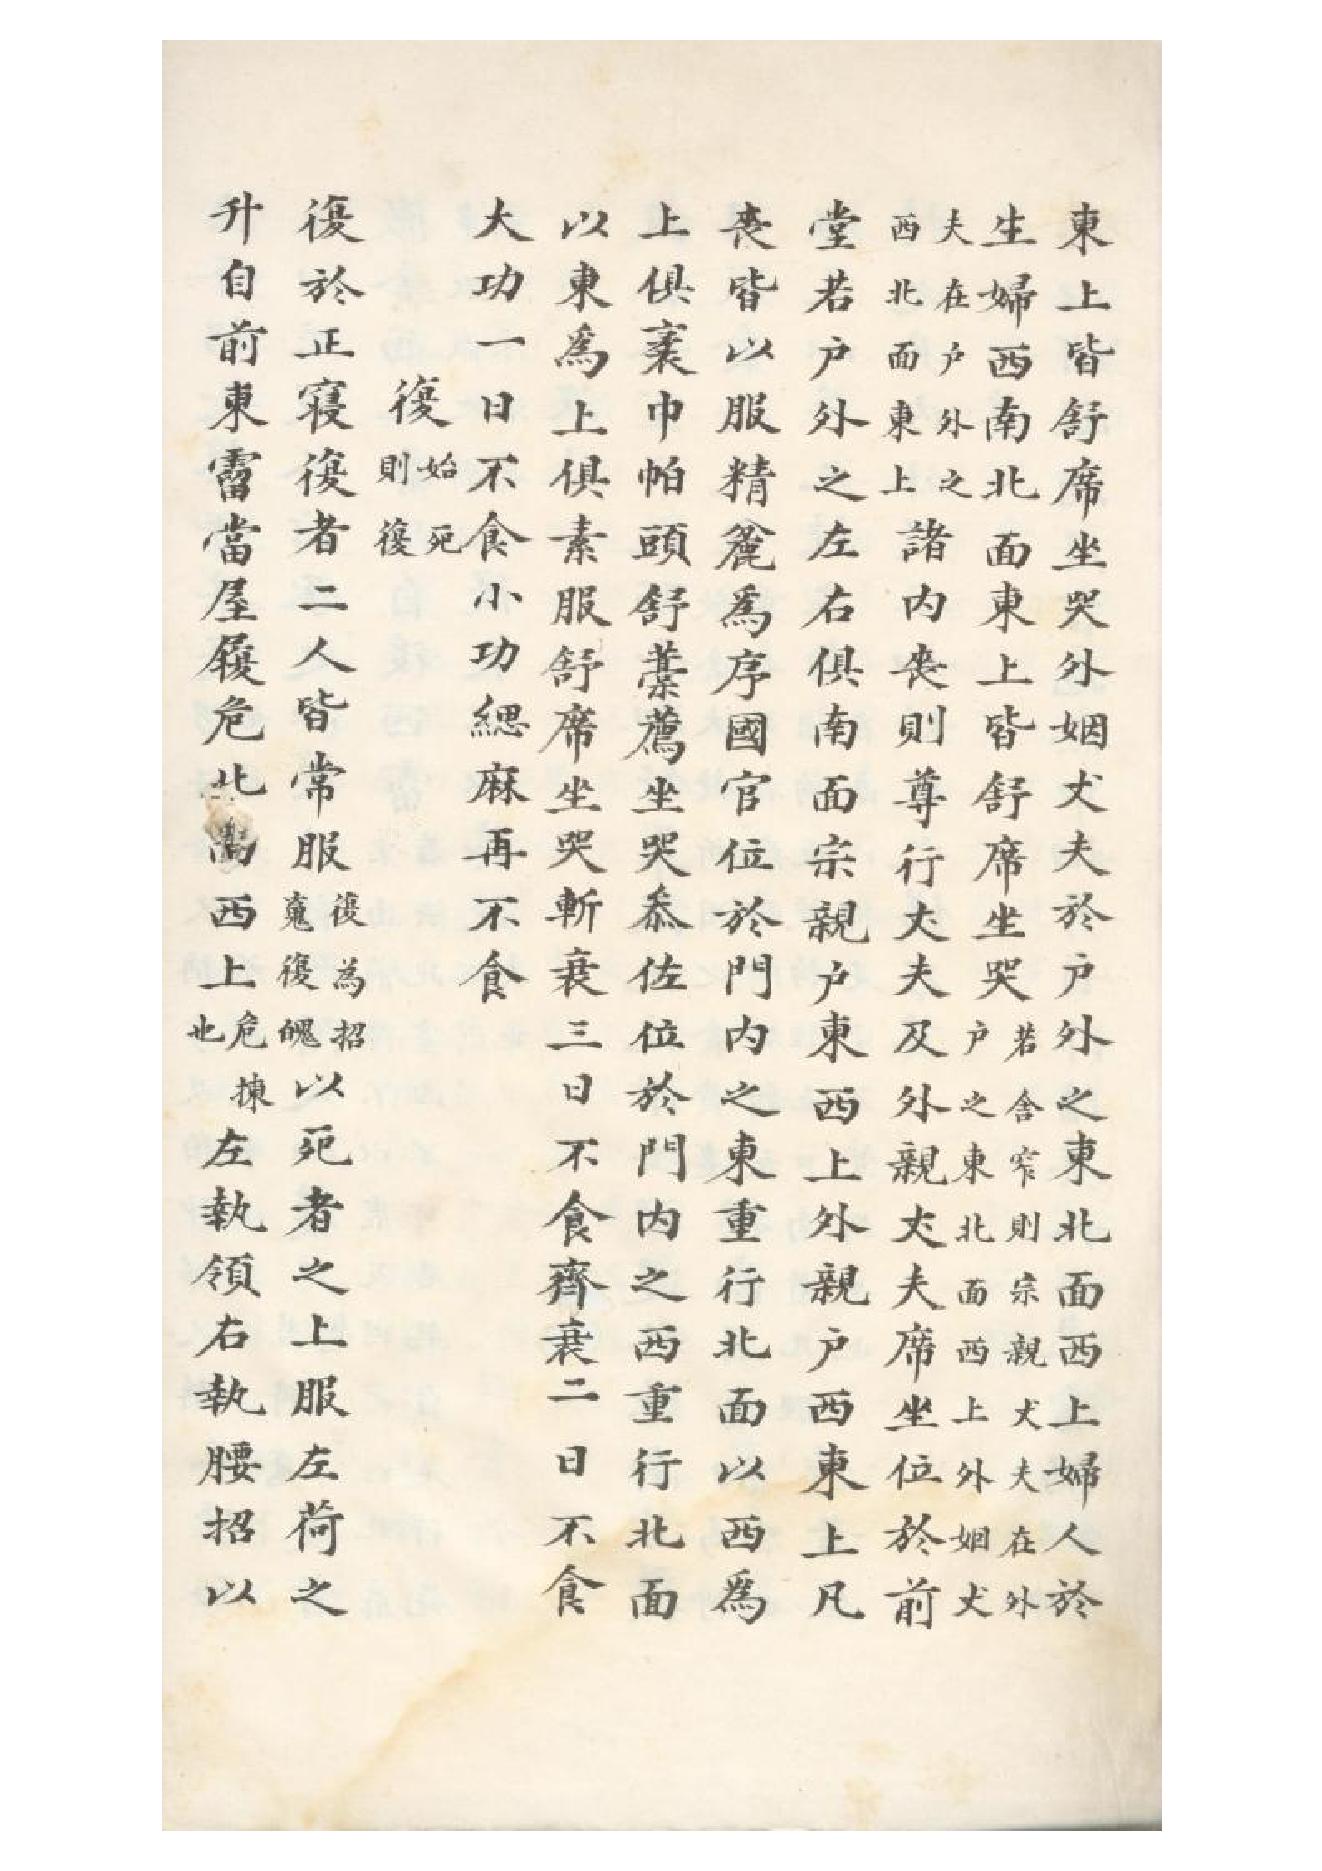 東上皆舒席坐哭外姻丈夫於户外之東北面西上婦人於
生婦西南北面東上皆舒席坐哭若舍窄則宗親丈夫在外户之東北面西上外姻丈
夫在户外之西北面東上諸内喪則尊行丈夫及外親丈夫席坐位於前
堂若户外之左右俱南面宗親户東西上外親户西東上凡
喪皆以服精麄爲序國官位於門内之東重行北面以西爲
上俱巾帕頭舒藁薦坐哭叅佐位於門内之西重行北面
以東爲上俱素服舒席坐哭斬衰三日不食齊衰二日不食
大功一日不食小功緦麻再不食
復始死則復
復於正寝復者二人皆常服復為招䰟復魄以死者之上服左荷之
升自前東霤當屋履危北西上危棟也左執領右執腰招以